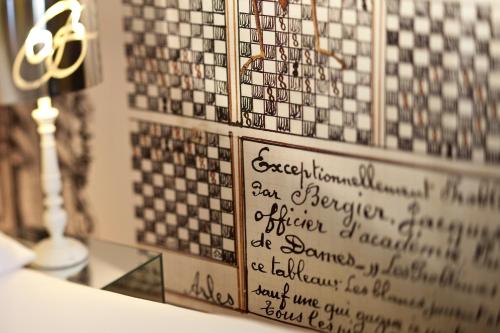 Exceptionnellement
Par Bergier,
officier d'académie
de Dames_,, Les
ce tableau: Les blancs jouent
sauf une qui gagne
tous les
Arles